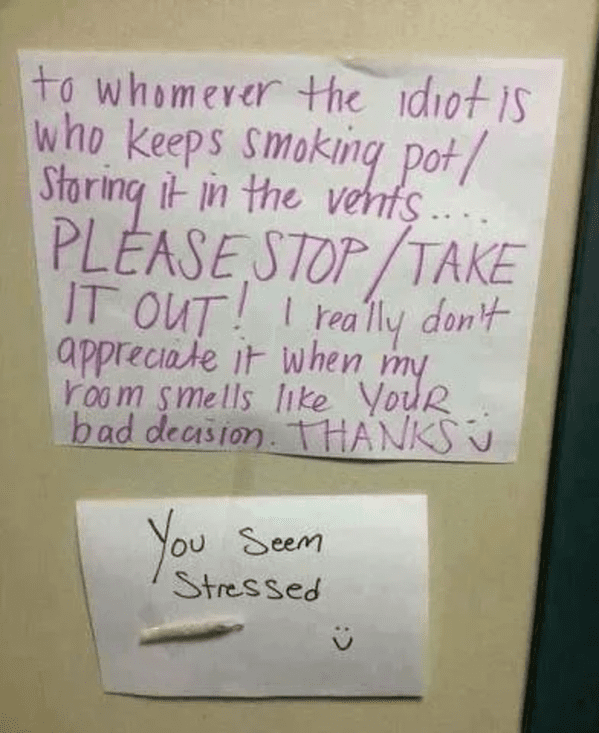 to whomever the idiot is
who keeps smoking pot/
Storing it in the vents....
PLEASE STOP/TAKE
IT OUT! I really don't
appreciate it when my
room smells like YOUR
bad decision. THANKS Ü
You Seem
Stressed
Ü